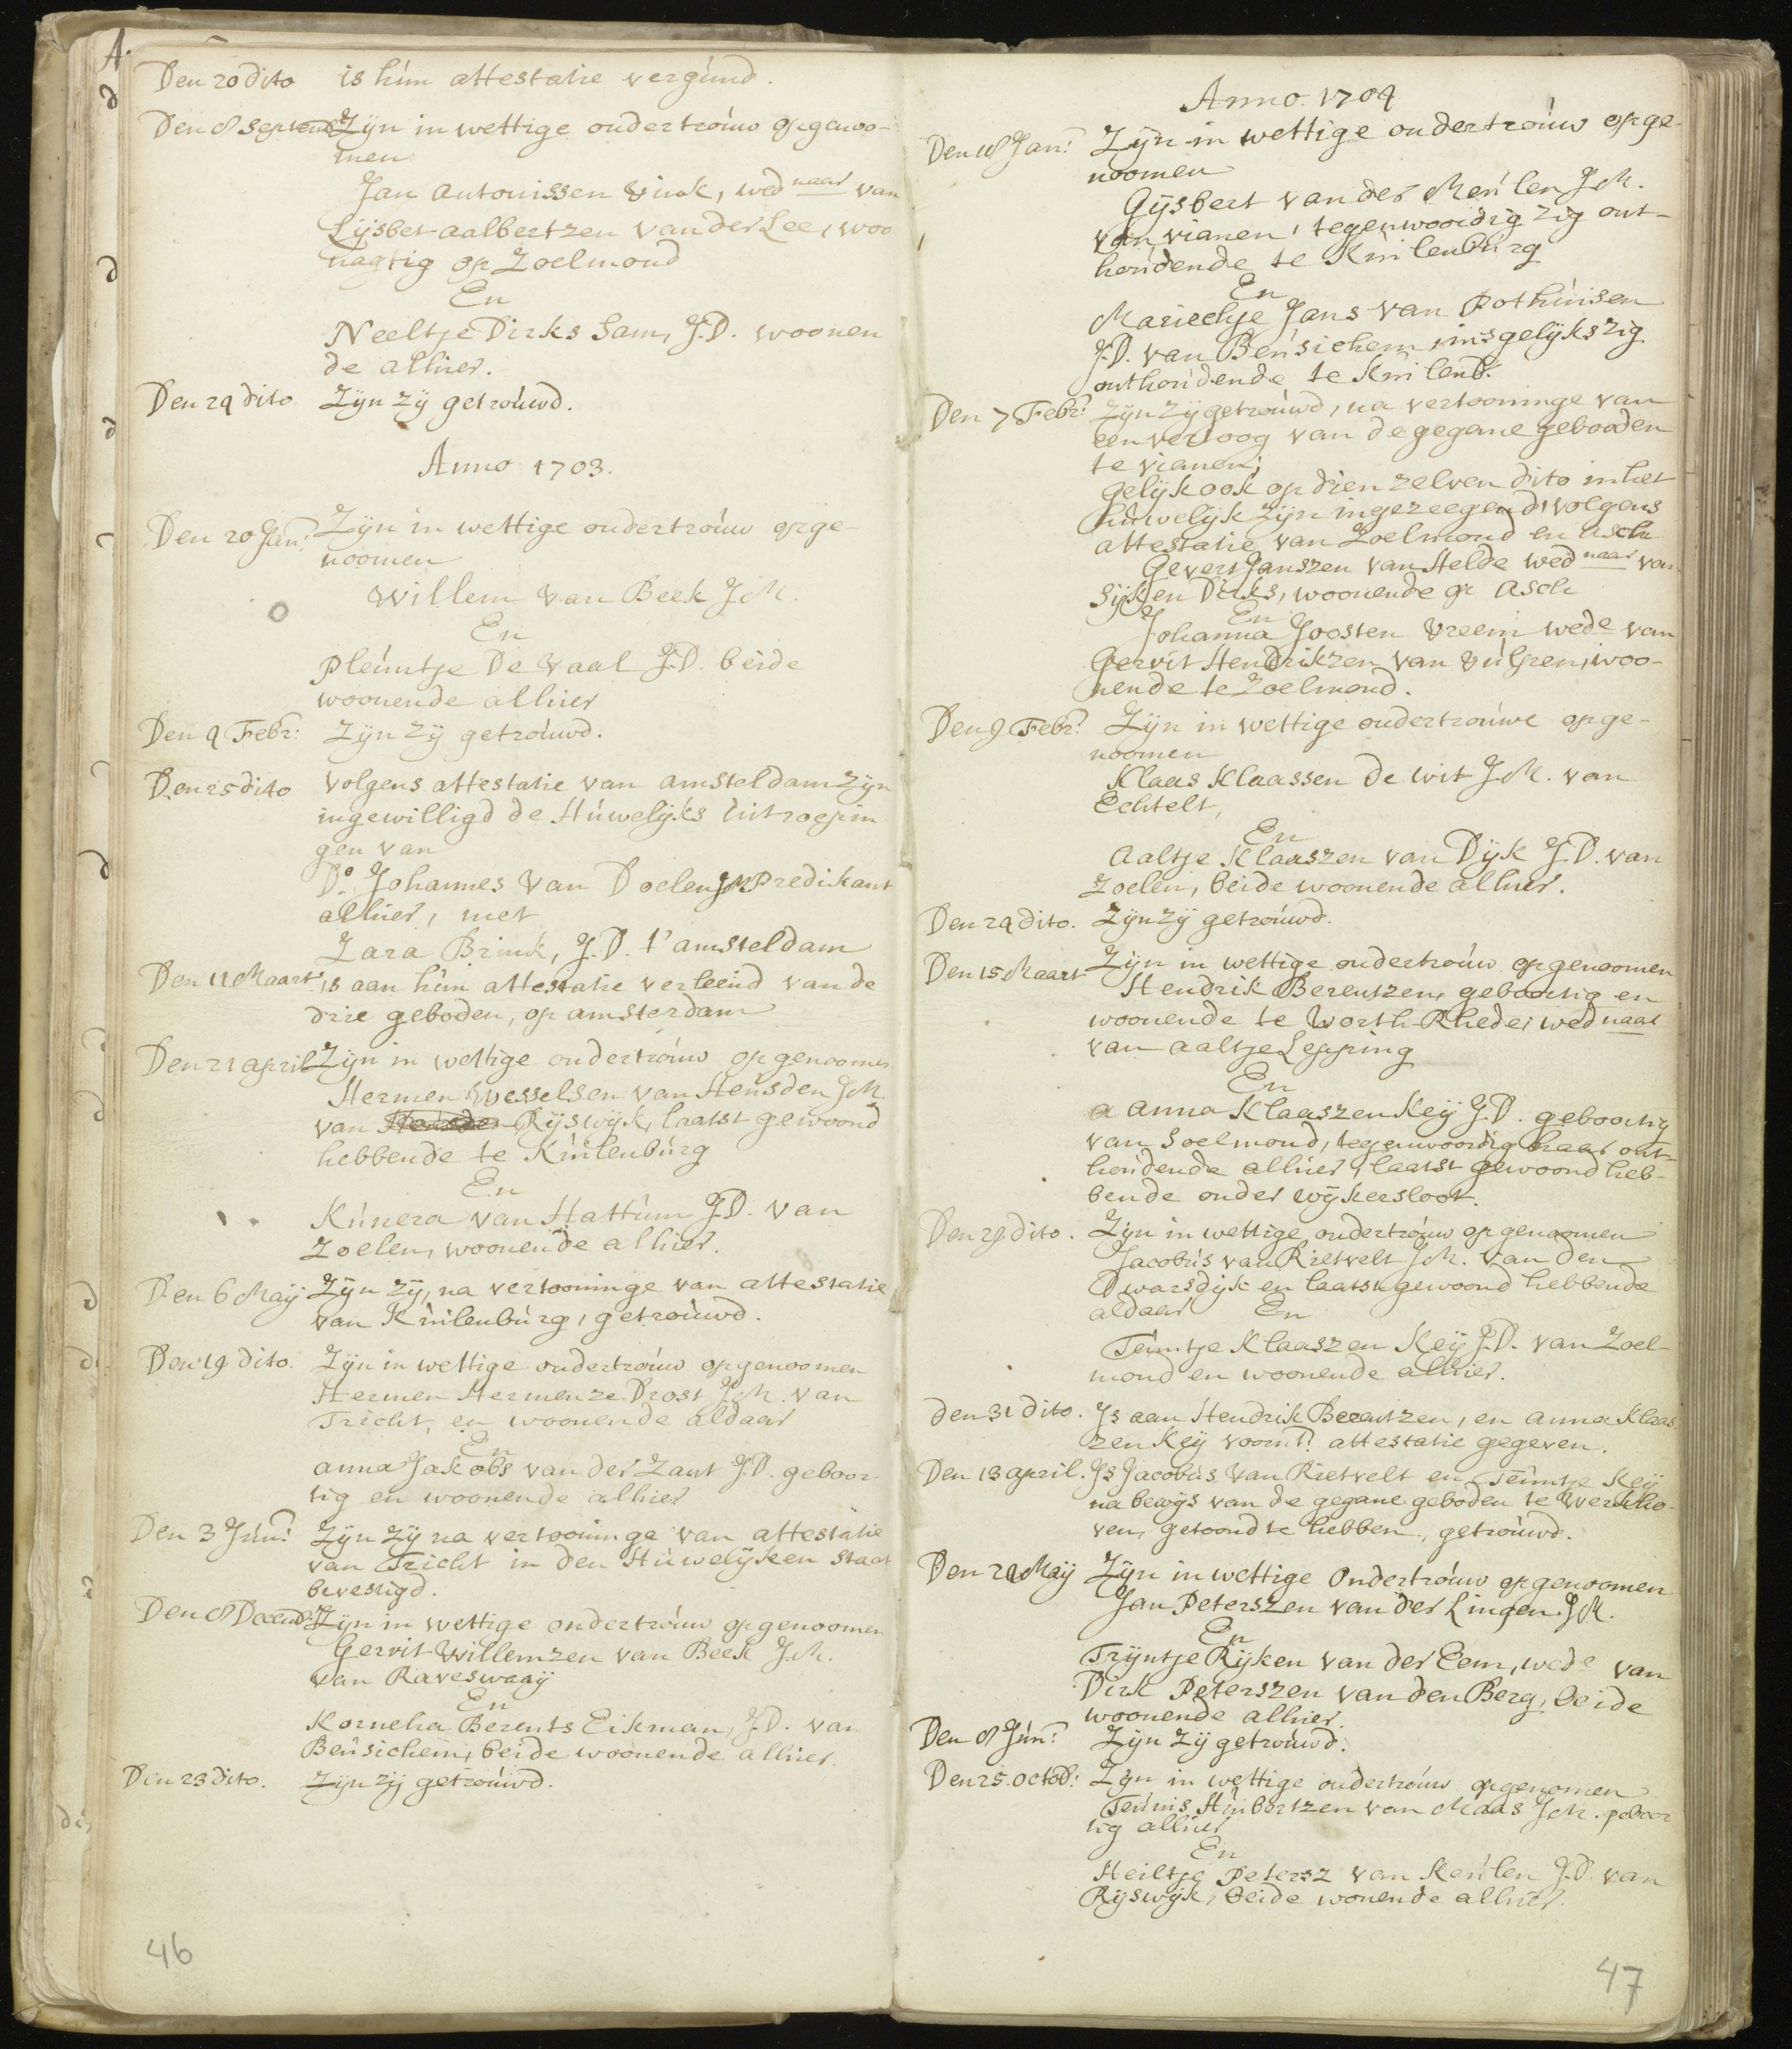 Den 20 dito is hún attestatie vergúnd.
Den 8 Septemb Zyn in wettige ondertroúw opgenoo-
men
Jan Antonissen Vink, wed naar van
Lijsbet Aalbertzen van der Lee, woo
nagtig op Zoelmond
En
Neeltje Dirks Sam, J.D. woonen
de alhier.
Den 24 dito Zyn zÿ getroúwd.
Anno 1703.
Den 20 Jan: Zyn in wettige ondertroúw opge-
noomen
Willem van Beek J.M.
En
Pleúntje De Vaal J.D. beide
woonende alhier
Den 9 Febr: Zyn zÿ getroúwd.
Den 25 dito Volgens attestatie van Amsteldam zyn
ingewilligd de Húwelyks úitroepin
gen van
Do. Johannes van Doelen JM Predikant
alhier, met
Zara Brink, J.D. t'amsteldam
Den 11 Maart is aan hún attestatie verleend van de
drie geboden, op amsterdam
Den 21 april Zyn in wettige ondertroúw opgenoomen
Hermen Wesselsen van Heúsden JM
van Heúsden Rÿswÿk, laatst gewoond
hebbende te Kúilenbúrg
En
Kúnera van Hattúm J.D. van
Zoelen, woonende alhier.
Den 6 Maÿ Zÿn zÿ, na vertooninge van attestatie
van Kúilenbúrg, getroúwd.
Den 19 dito. Zyn in wettige ondertroúw opgenoomen
Hermen Hermenze Drost J.M. van
Tricht, en woonende aldaar
En
anna Jakobs van der Zant J.D. geboor
tig en woonende alhier
Den 3 Jún: Zÿn zÿ na vertooninge van attestatie
van Tricht in den Húwelÿken staat
bevestigd.
Den 8 Decemb: Zyn in wettige ondertroúw opgenoomen
Gerrit Willemzen van Beek J.M.
van Raveswaaÿ
En
Kornelia Berents Eikman, J.D. van
Beúsichem, beide woonende alhier.
Den 23 dito. Zyn zÿ getroúwd.
46
Anno 1704
Den 18 Jan: Zÿn in wettige ondertroúw opge-
noomen
Gÿsbert van der Meúlen J.M.
van vianen, tegenwoordig zig ont-
hoúdende te Kúilenbúrg
En
Mariechje Jans van Pothúisen
J.D. van Beúsichem, insgelÿks zig
onthoúdende te Kúilenb.
Den 7 Febr: Zÿn zÿ getroúwd, na vertooninge van
een vertoog van de gegane gebooden
te vianen;
gelÿk ook op dien zelven dito in het
húwelÿk zÿn ingezeegend, volgens
attestatie van Zoelmond en Asch
Gevert Janszen van Helde wed naar van
Sÿken Dirks, woonende op Asch
En
Johanna Joosten Vreem wede van
Gerrit Hendrikzen van Vúlpen, woo-
nende te Zoelmond.
Den 9 Febr: Zÿn in wettige ondertroúwe opge-
noomen
Klaas Klaassen de Wit J.M. van
Echtelt,
En
Aaltje Klaaszen van Dÿk J.D. van
Zoelen, beide woonende alhier.
Den 24 dito. Zÿn zÿ getroúwd.
Den 15 Maart Zÿn in wettige ondertroúw opgenoomen
Hendrik Berentzen, geboortig en
woonende te Worth-Rhede, wed naar
van Aaltje Lepping
En
Anna Klaaszen Keÿ J.D. geboortig
van Soelmond, tegenwoordig haar ont-
hoúdende alhier, laatst gewoond heb-
bende onder wÿkersloot.
Den 29 dito. Zÿn in wettige ondertroúw opgenoomen
Jacobús van Rietvelt J.M. van den
Dwarsdÿk en laatst gewoond hebbende
aldaar En
Teúntje Klaaszen Keÿ J.D. van Zoel-
mond en woonende alhier.
den 31 dito. Is aan Hendrik Berentzen, en Anna Klaas
zen Keÿ voornt. attestatie gegeven.
Den 13 april. Is Jacobús van Rietvelt en Teúntje Keÿ
na bewÿs van de gegane geboden te Werkho-
ven, getoond te hebben, getroúwd.
Den 24 Maÿ Zÿn in wettige ondertroúw opgenoomen
Jan Peterszen van der Lingen J.M.
En
Trÿntje Rÿken van der Eem, wede van
Dirk Peterszen van den Berg, beide
woonende alhier.
Den 8 Jún: Zÿn zÿ getroúwd.
Den 25 octob: Zÿn in wettige ondertroúw opgenomen
Teúnis Húibertzen van Maas J.M. geboor
tig alhier
En
Heiltje Petersz van Keúlen J.D. van
Rÿswÿk, beide wonende alhier.
47